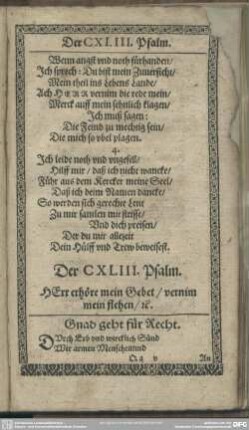 Der CXLIII. Psalm.
Wenn angst vnd noth fürhanden/
Ich sprech: Du bist mein Zuuersicht/
Mein theil ins Lebens Lande/
Ach HERR vernim die rede mein/
Merck auff mein sehnlich klagen/
Ich muß sagen:
Die Feind zu mechtig sein/
Die mich so vbel plagen.
4.
Ich leide noth vnd vngefell/
Hilff mir/ daß ich nicht wancke/
Führ aus dem Kercker meine Seel/
Daß ich deim Namen dancke/
So werden sich gerechte Leut
Zu mir samlen mit
Vnd dich preisen/
Der du mir allezeit
Dein Hülff vnd Trew beweisest.
Der CXLIII. Psalm.
HErr erhöre mein Gebet/ vernim
mein flehen/ ꝛc.
Gnad geht für Recht.
DVrch Erb vnd wircklich Sünd
Wir armen Menschenkind
Qq v
An